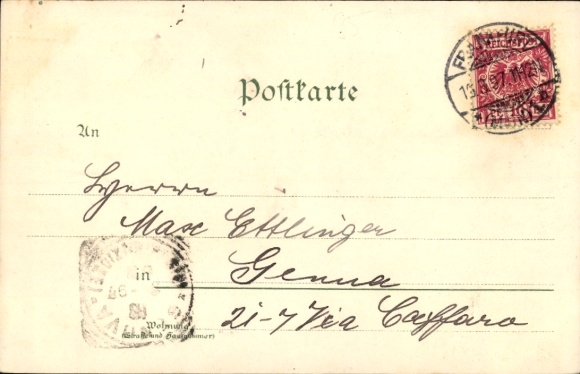 Postkarte
An
Herrn
Max Ettlinger
in Genua
21-7 Via Caffaro
Wohnung
(Straße und Hausnummer)